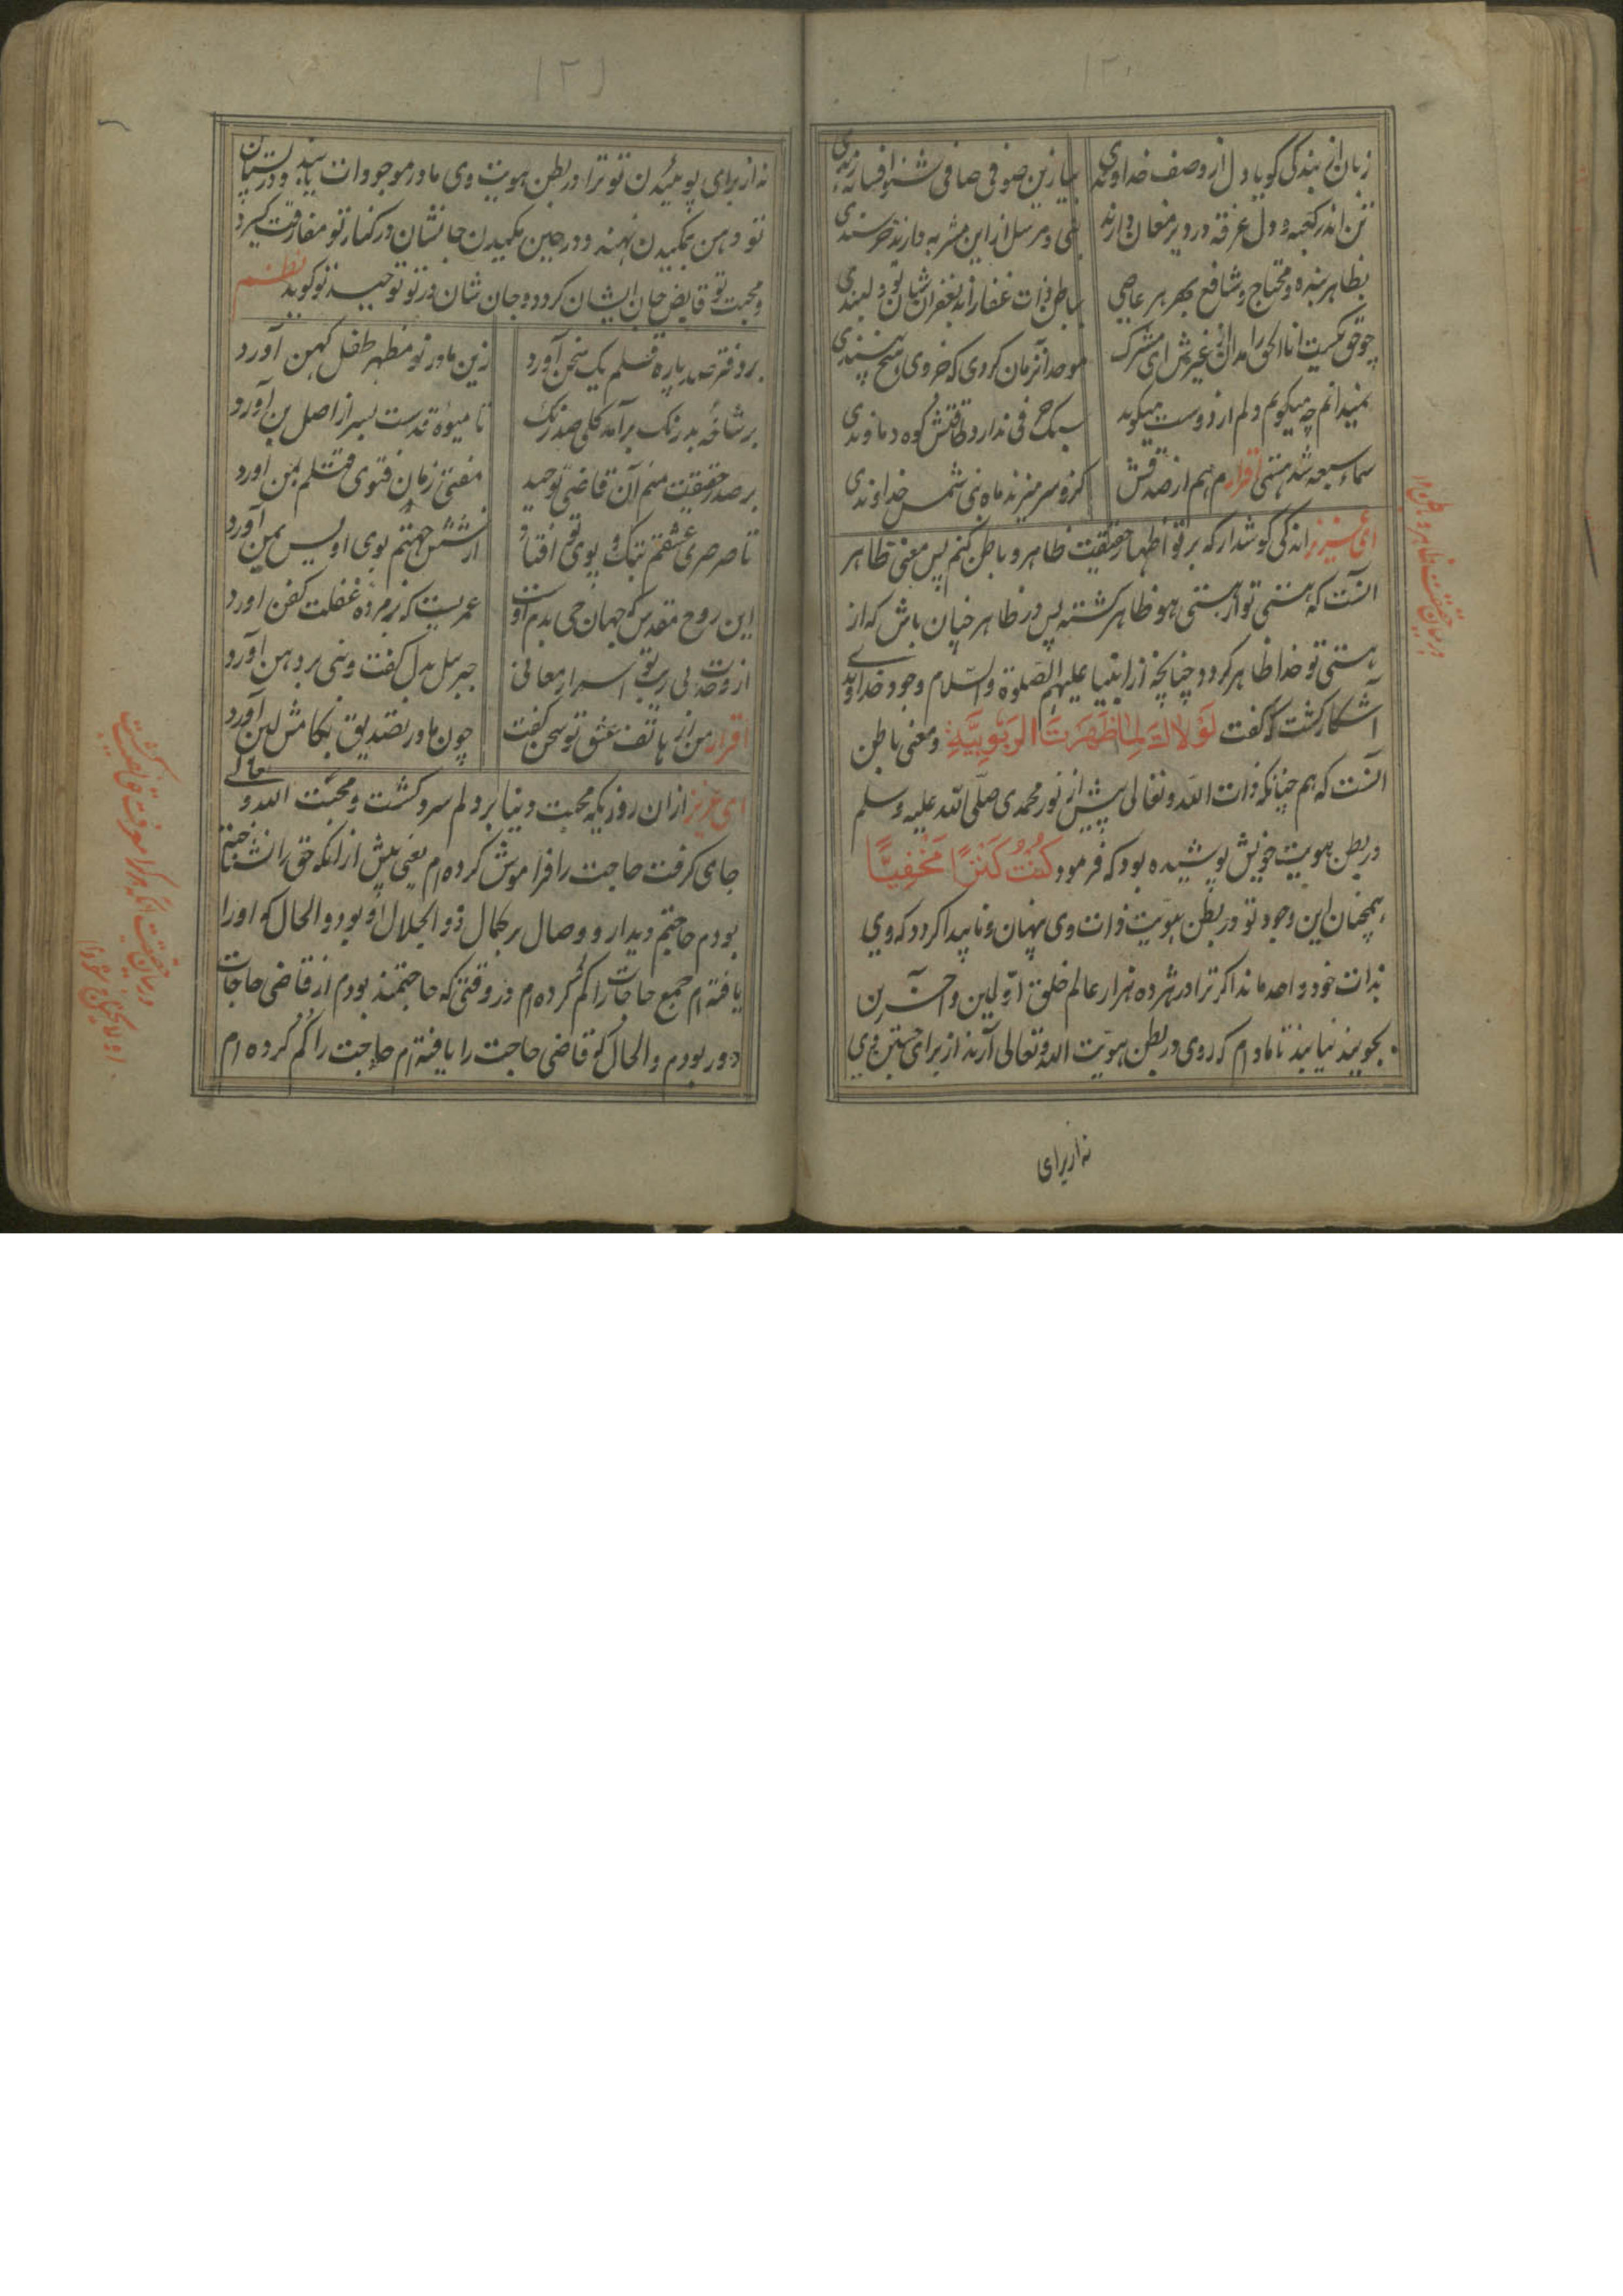 زبان از بندگی گویا و دل از وصف خداوندی
بیا زین صوفی صافی شنو افسانه رندی
تن اندر کعبه و دل غرقه در دیر مغان دارند
نبی و مرسل از این مشربه دارند خرسندی
بظاهر بنده و محتاج و شافع بهر هر عاصی
بباطن ذات غفارند بغفران
چو حق یکیست انا الحق را مدان غیرش ای مشرک
موحد آنزمان گردی که خر وی
نمیدانم چه میگویم دلم از دوست میگوید
سبک حرفی ندارد طاقتش کوه دماوندی
سماء سبعه شد منتهی اقرارم هم از صدقش
کزو سر میزند ماه نبی شمس خداوندی
ای عزیز اندکی گوشدار که بر تو اظهار حقیقت ظاهر و باطن کنم پس معنی ظاهر
آنست که هستی تو از هستی هو ظاهر گشته پس در ظاهر چنان باش که از
هستی تو خدا ظاهر گردد چنانچه از انبیا علیهم الصلوة والسلام وجود خداوندی
آشکار گشت که گفت لَوْلَاكَ لِمَا ظَهَرَتَ الرَبُوبِيَّةِ و معنی باطن
آنست که هم چنانکه ذات الله و تعالی پیش از نور محمدی صلی الله علیه و سلم
در بطن هویت خویش پوشیده بود که فرمود كُنْتُ كَنْزًا مَخْفِيًّا
همچنان این وجود تو در بطن هویت ذات وی پنهان و ناپیدا گردد که وی
بذات خود واحد ماند اگر ترا در هژده هزار عالم خلق اولین و آخرین
بجویند نیابند تا مادام که روی در بطن هویت الله و تعالی آرند از برای جستن وی
نه از برای
در بیان حقیقت ظاهر و باطن
نه از برای پوئیدن تو ترا در بطن هویت وی مادر موجودات یابند و در پستان
تو دهن بمکیدن نهند و در حین مکیدن جانشان در کنار تو مفارقت گیرد
و محبت تو قابض جان ایشان گردد و جان شان در تو توحید تو گوید نظم
بر دفتر صد پاره قلم یک سخن آورد
زین مادر نو مظهر طفل کهن آورد
بر شاخه بد رنگ برآمد گلی صد رنگ
تا میوه قدست بسر از اصل بن آورد
بر صدر حقیقت منم آن قاضی توحید
مفتی زمان فتوی قتلم بمن آورد
تا صرصری عشقم بتک و پوی تو افتاد
از شش جهتم بوی اویس یمن آورد
این روح مقدس که جهان حی بدم اوست
عمریست که بر مرده غفلت کفن آورد
از وحدت بی ریب تو اسرار معانی
جبرئیل بدل گفت و نبی بر دهن آورد
اقرار من از هاتف عشق تو سخن گفت
چون مادر تصدیق بکامش لبن آورد
ای عزیز از ان روزیکه محبت دنیا بر دلم سرد گشت و محبت الله و تعالی
جای گرفت حاجت را فراموش کرده ام یعنی پیش از انکه حق را نشناخته
بودم حاجتم دیدار و وصال بر کمال ذو الجلال او بود و الحال که او را
یافته ام جمیع حاجات را گم کرده ام در وقتی که حاجتمند بودم از قاضی حاجات
دور بودم و الحال که قاضی حاجت را یافته ام حاجت را گم کرده ام